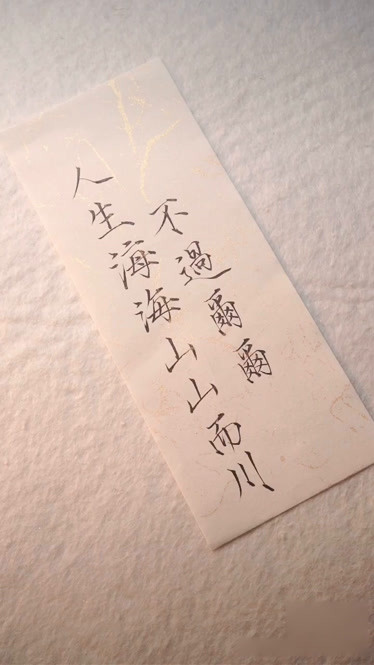 人生海海山山而川
不過爾爾